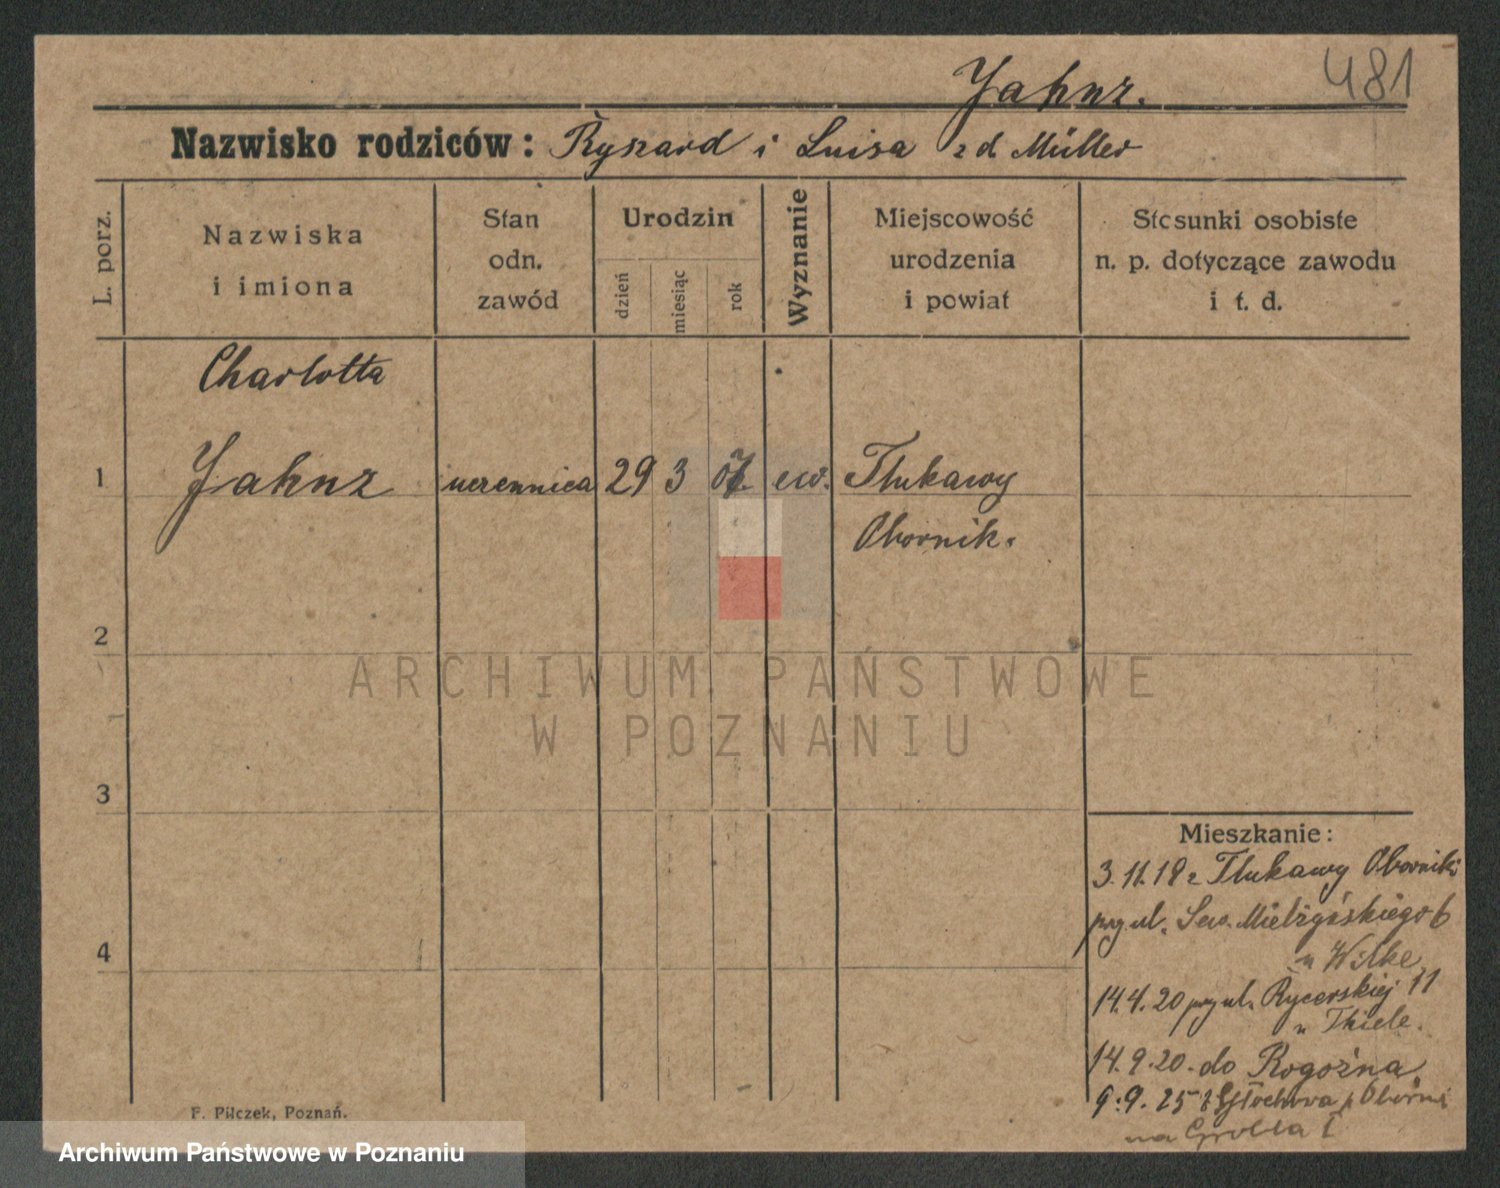 Jahnz.
481
Nazwisko rodziców: Ryszard i Luisa z d Müller
L. porz.
Nazwiska
i imiona
Stan
odn.
zawód
Urodzin
dzień
miesiąc
rok
Wyznanie
Miejscowość
urodzenia
i powiat
Stosunki osobiste
n. p. dotyczące zawodu
i t. d.
Charlotta
1 Jahnz uczennica 29 3 07. ew. Tłukawy
Obornik.
2
ARCHIWUM PAŃSTWOWE
W POZNANIU
3
Mieszkanie:
3.11.19 z Tłukawy Oborniki
przy ul. Sew. Mielżyńskiego 6
u Wilke
4
14.4.20 przy ul. Rycerskiej 11
u Thiele.
14.9.20. do Rogoźna
9.9.25 z
na Grobla 1
F. Pilczek, Poznań.
Archiwum Państwowe w Poznaniu